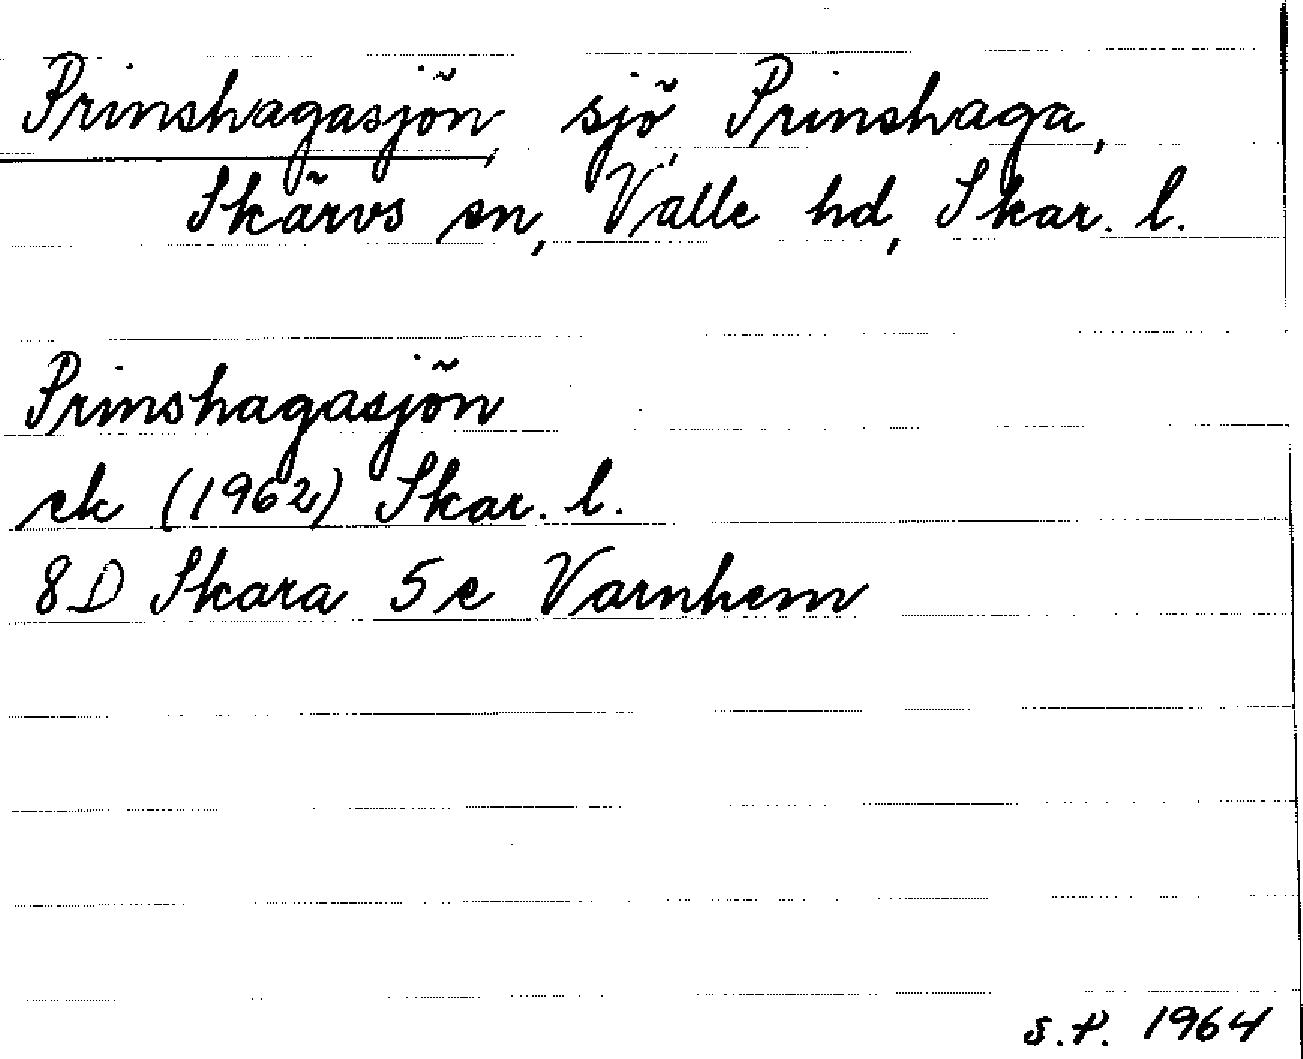 Prinshagasjön, sjö, Prinshaga,
Skärvs sn, Valle hd, Skar. l.
Prinshagasjön
ek (1962) Skar. l.
8D Skara 5e Varnhem
S.P. 1964